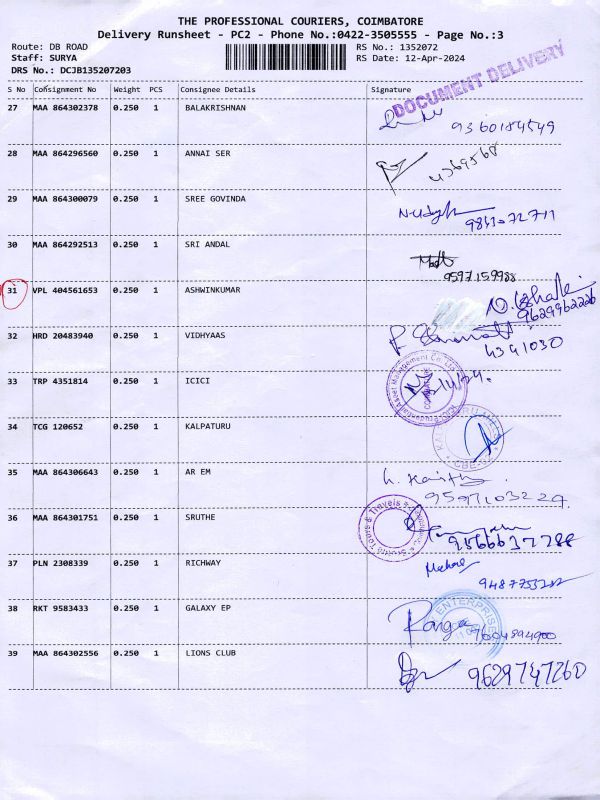 THE PROFESSIONAL COURIERS, COIMBATORE
Delivery Runsheet - PC2 - Phone No.:0422-3505555 - Page No.:3
Route: DB ROAD RS No.: 1352072
Staff: SURYA RS Date: 12-Apr-2024
DRS No.: DCJB135207203
DOCUMENT DELIVERY
S No Consignment No Weight PCS Consignee Details Signature
27 MAA 864302378 0.250 1 BALAKRISHNAN
9360184549
28 MAA 864296560 0.250 1 ANNAI SER
4369568
29 MAA 864300079 0.250 1 SREE GOVINDA
30 MAA 864292513 0.250 1 SRI ANDAL
9597159988
31 VPL 404561653 0.250 1 ASHWINKUMAR
9629962226
32 HRD 20483940 0.250 1 VIDHYAAS
4391030
33 TRP 4351814 0.250 1 ICICI
34 TCG 120652 0.250 1 KALPATURU
35 MAA 864306643 0.250 1 AR EM
9597103229
36 MAA 864301751 0.250 1 SRUTHE
9566637788
37 PLN 2308339 0.250 1 RICHWAY
38 RKT 9583433 0.250 1 GALAXY EP
ENTERPRISE
Ranga 7604894900
39 MAA 864302556 0.250 1 LIONS CLUB
9629747260